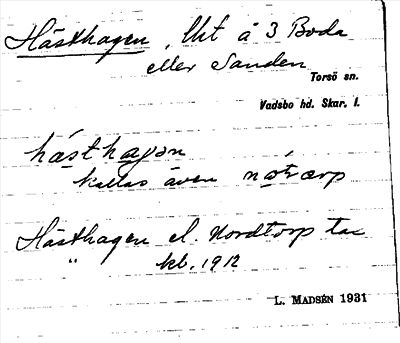 Hästhagen, lht å 3 Boda
eller Sanden
Torsö sn.
Vadsbo hd. Skar. l.
hästhagən
kallas även nớrærp
Hästhagen el. Nordtorp tax
" kb. 1912
L. MADSÉN 1931